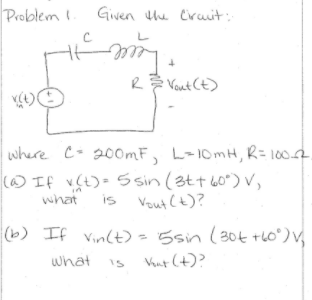 Problem 1. Given the Circuit:
C L
+
R Vout(t)
vin(t) +
-
where C = 200mF, L=10mH, R=100Ω
(a) If vin(t) = 5 sin (3t+60°) V,
what is vout(t)?
(b) If vin(t) = 5sin (30t +60°) V,
what is vout(t)?